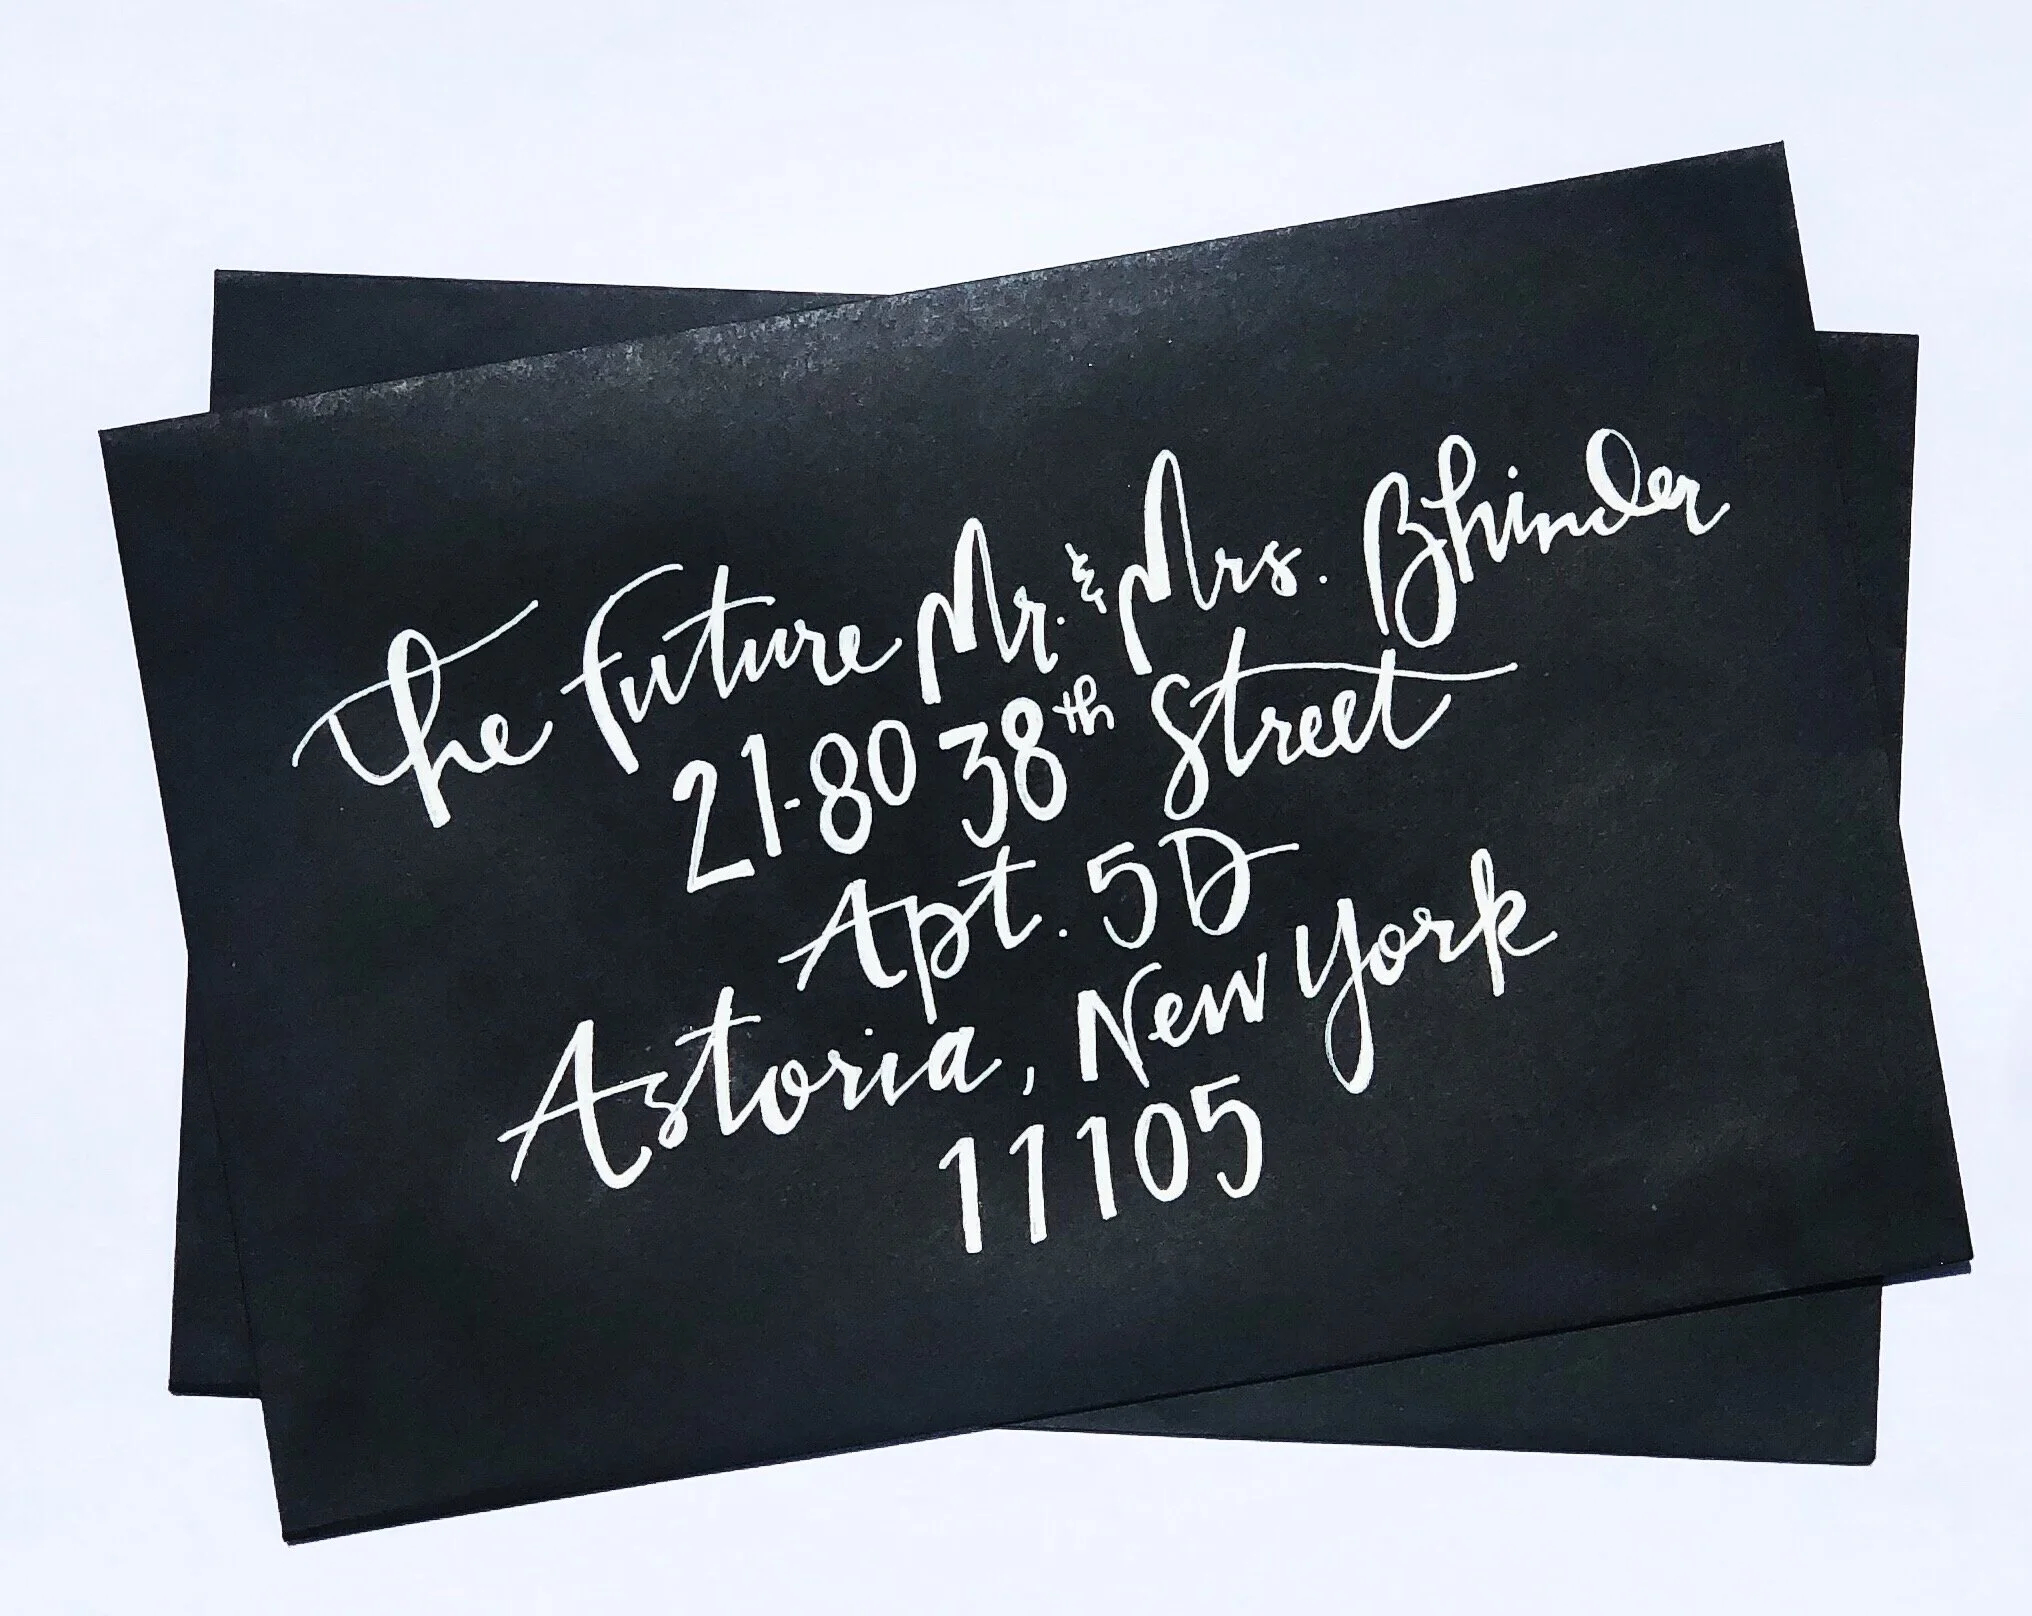 The Future Mr. & Mrs. Bhinder
21-80 38th Street
Apt. 5D
Astoria, New York
11105